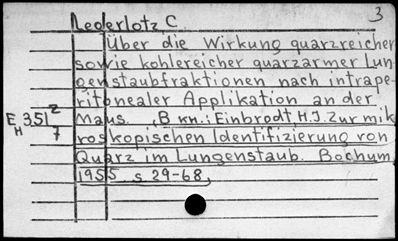 3
Lederlotz, C.
Über die Wirkung quarzreicher
sowie kohlereicher quarzarmer Lun-
genstaubfraktionen nach intrape-
ritonealer Applikation an der
Maus. , В кн.: Einbrodt, H.J. Zur mik
roskopischen Identifizierung von
Quarz im Lungenstaub. Bochum,
1955, s 29-68,
E H 351 2/7